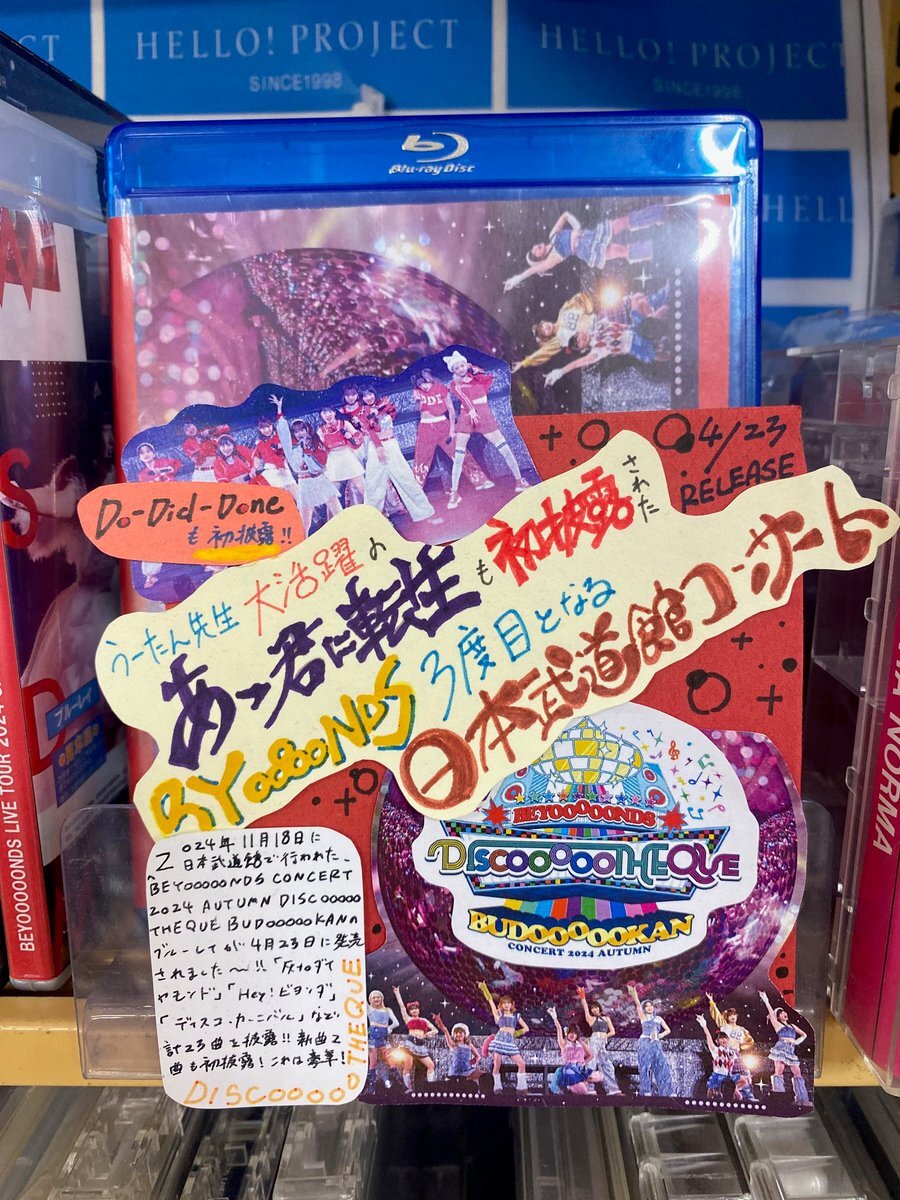 HELLO! PROJECT
SINCE1998
HELLO! PROJECT
HELL
Blu-ray Disc
4/23
RELEASE
Do-Did-Done
も初披露!!
うーたん先生大活躍の
あゝ君に転生も初披露された
BEYOOOOONDS 3度目となる
日本武道館コンサート
BEYOOOOONDS
DISCOOOOOTHEQUE
BUDOOOOOKAN
CONCERT 2024 AUTUMN
2024年11月18日に
日本武道館で行われた、
BEYOOOOONDS CONCERT
2024 AUTUMN DISCOOOOO
THEQUE BUDOOOOOKANの
ブルーレイが4月23日に発売
されました〜!!「灰toダイ
ヤモンド」「Hey!ビヨンダ」
「ディスコ・カーニバル」など
計23曲を披露!!新曲2
曲も初披露!これは豪華!
DISCOOOOOTHEQUE
ブルーレイ
BEYOOOOONDS LIVE TOUR 2024
NORMA